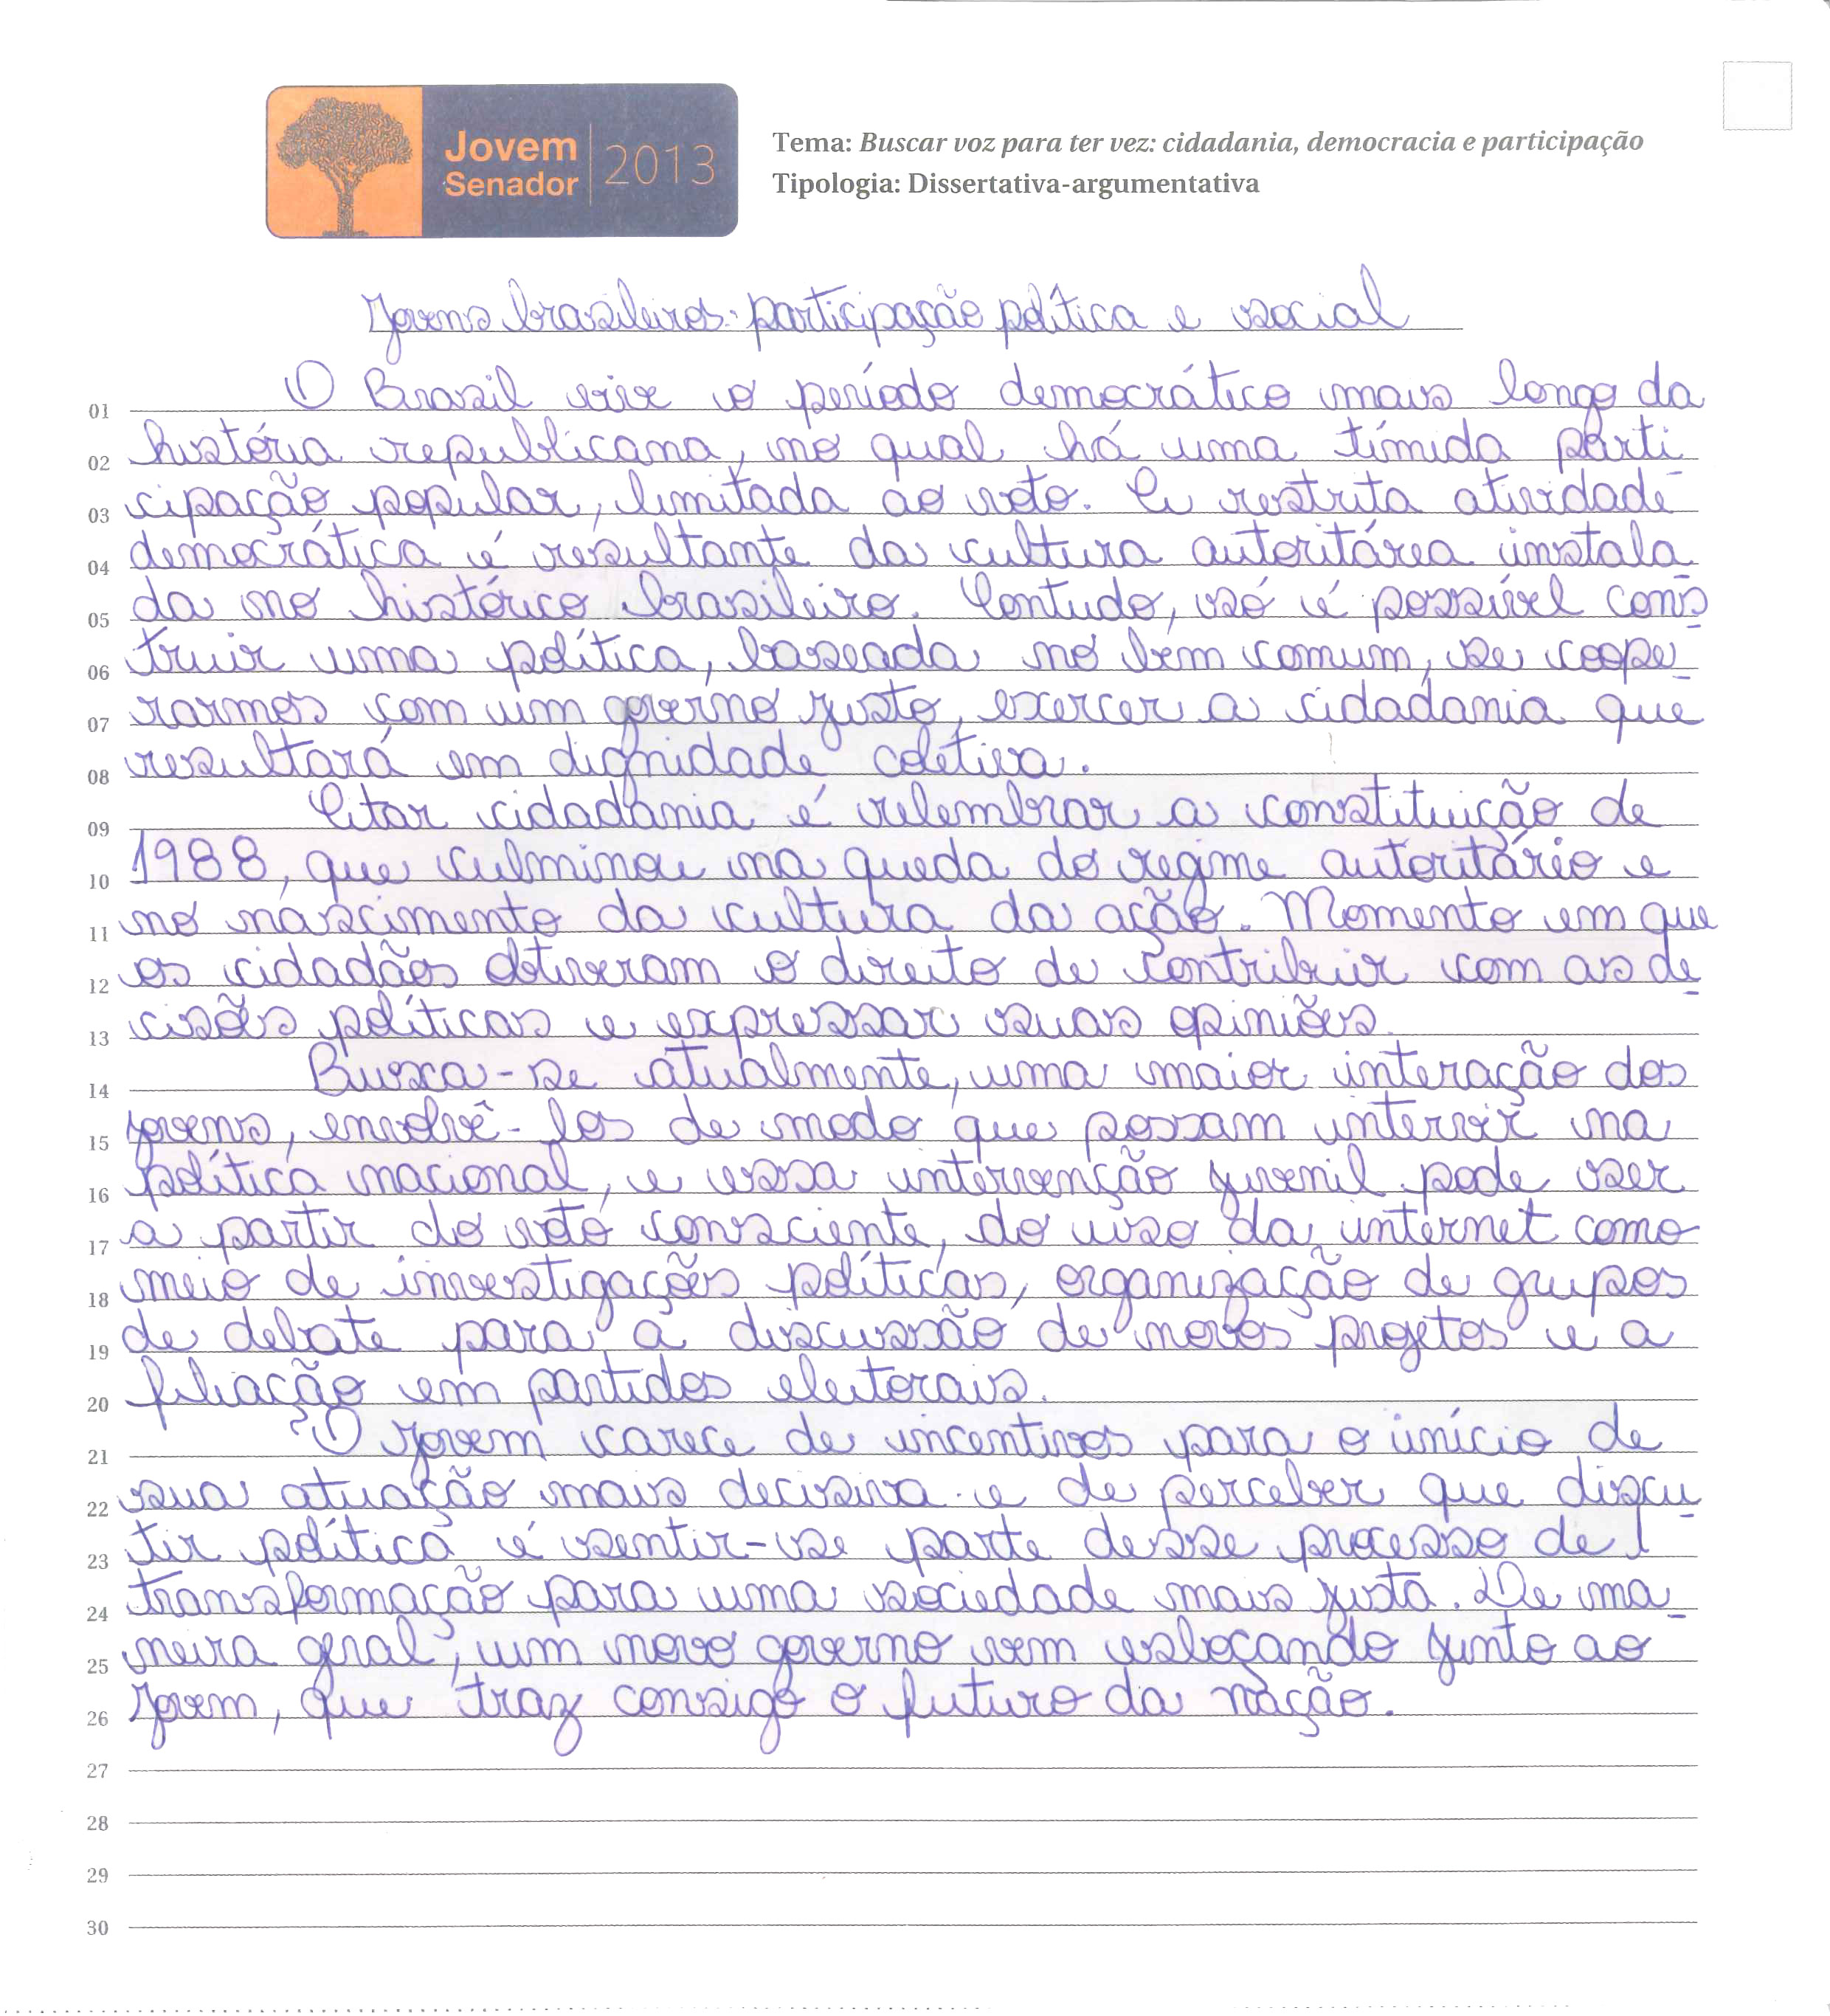 Jovem Senador 2013
Tema: Buscar voz para ter vez: cidadania, democracia e participação
Tipologia: Dissertativa-argumentativa
Jovens brasileiros: participação política e social
01 O Brasil vive o período democrático mais longo da
02 história republicana, no qual há uma tímida parti
03 cipação popular, limitada ao voto. E restrita atividade
04 democrática é resultante da cultura autoritárea instala
05 da no histórico brasileiro. Contudo, só é possível cons
06 truir uma política, baseada no bem comum, se coope
07 rarmos com um governo justo, exercer a cidadania que
08 resultará em dignidade coletiva.
09 Citar cidadania é relembrar a constituição de
10 1988, que culminou na queda do regime autoritário e
11 no nascimento da cultura da ação. Momento em que
12 os cidadãos obtiveram o direito de contribuir com as de
13 cisões políticas e expressar suas opiniões.
14 Busca-se atualmente, uma maior interação dos
15 jovens, envolvê-los de modo que possam intervir na
16 política nacional, e essa intervenção juvenil pode ser
17 a partir do voto consciente, do uso da internet como
18 meio de investigações políticas, organização de grupos
19 de debate para a discussão de novos projetos e a
20 filiação em partidos eleitorais.
21 O jovem carece de incentivos para o início de
22 sua atuação mais decisiva e de perceber que discu
23 tir política é sentir-se parte desse processo de
24 transformação para uma sociedade mais justa. De ma
25 neira geral, um novo governo vem esboçando junto ao
26 jovem, que traz consigo o futuro da nação.
27
28
29
30